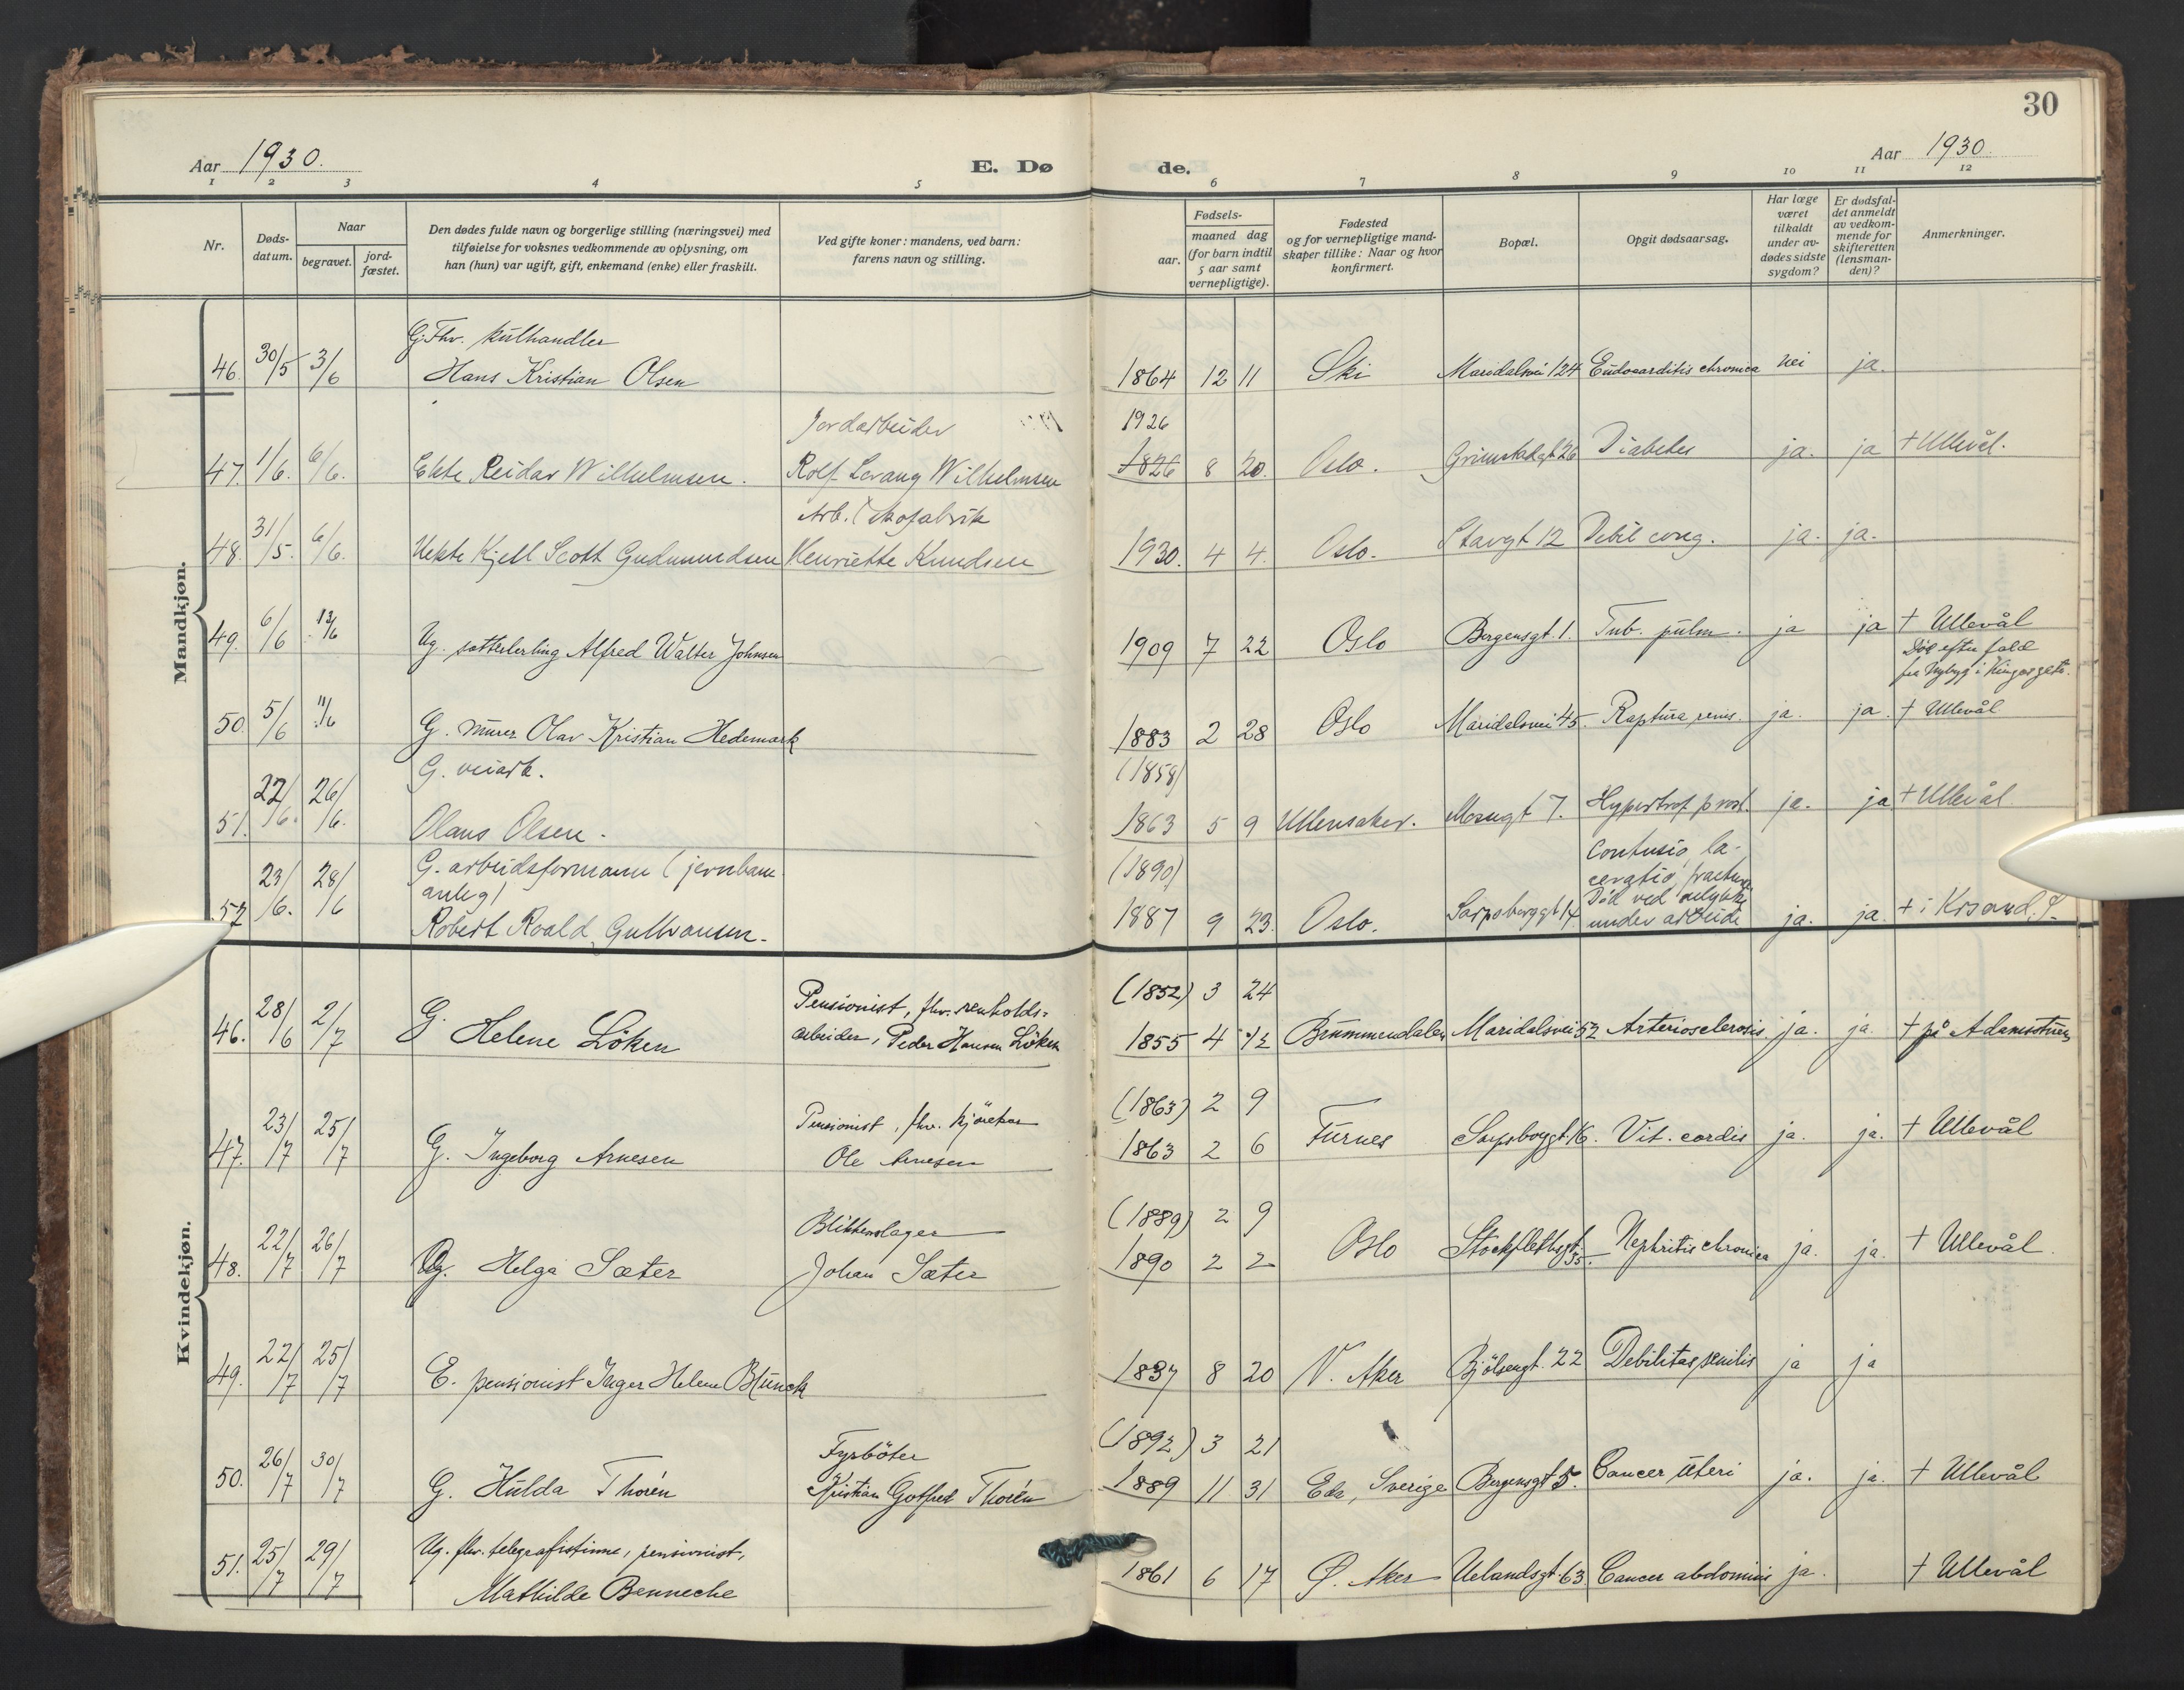 30
Aar 1930.
E. Dø de.
Aar 1930.
1 2 3 4 5 6 7 8 9 10 11 12
Nr.
Døds-
datum.
Naar
begravet.
jord-
fæstet.
Den dødes fulde navn og borgerlige stilling (næringsvei) med
tilføielse for voksnes vedkommende av oplysning, om
han (hun) var ugift, gift, enkemand (enke) eller fraskilt.
Ved gifte koner: mandens, ved barn:
farens navn og stilling.
Fødsels-
aar.
maaned dag
(for barn indtil
5 aar samt
vernepligtige).
Fødested
og for vernepligtige mand-
skaper tillike: Naar og hvor
konfirmert.
Bopæl.
Opgit dødsaarsag.
Har læge
været
tilkaldt
under av-
dødes sidste
sygdom?
Er dødsfal-
det anmeldt
av vedkom-
mende for
skifteretten
(lensman-
den)?
Anmerkninger.
Mandkjøn.
G. Fhv. kulhandler
46. 30/5 3/6 Hans Kristian Olsen 1864 12 11 Ski Maridalsvei 124 Endocarditis chronica nei ja.
Jordarbeider 1926
47. 1/6. 6/6. Ekte Reidar Wilhelmsen. Rolf Levang Wilhelmsen 1826 8 20. Oslo. Grimstadgt 26 Diabetes ja. ja + Ullevål.
Arb. i skofabrik
48. 31/5. 6/6. Uekte Kjell Scott Gudmundsen Henriette Knudsen 1930. 4 4. Oslo. Stavgt 12 Debil cong. ja. ja.
49. 6/6 13/6 Ug. Alfred Walter Johnsen 1909 7 22 Oslo Bergensgt. 1. Tub. pulm. ja ja + Ullevål
Död efter fald
fra Nybyg i
50. 5/6 11/6 G. murer Olav Kristian Hedemark 1883 2 28 Oslo Maridalsvei 45. Ruptura renis. ja. ja. + Ullevål
G. veiarb. (1858)
51. 22/6. 26/6. Olaus Olsen. 1863 5 9 Ullensaker. Mosugt 7. Hypertrof. prost. ja. ja + Ullevål.
G. arbeidsformann (jernbane-
anleg) (1890) Contusio, la-
ceratio, fractura
Död ved ulykke
52. 23/6. 28/6 Robert Roald Gulbransen. 1887 9 23. Oslo. Sarpsborggt 14. under arbeide ja. ja. + i Krsand. S.
Kvindekjøn.
Pensionist, fhv. renholds- (1852) 3 24
46. 28/6 2/7 G. Helene Löken arbeider, Peder Hansen Löken 1855 4 1/2 Brummendalen Maridalsvei 52 Arteriosclerosis. ja. ja. + på Adamstuen
Pensionist, fhv. (1863) 2 9
47. 23/7 25/7 G. Ingeborg Arnesen Ole Arnesen 1863 2 6 Furnes Sarpsborggt. 16. Vit. cordis ja. ja. + Ullevål
Blikkenslager (1889) 2 9
48. 22/7 26/7 G. Helga Sæter Johan Sæter 1890 2 2 Oslo Stockflethsgt 35. Nephritis chronica ja. ja. + Ullevål.
49. 22/7 25/7 E. pensionist Inger Helene Blunck 1837 8 20 V. Aker Bjölsengt. 22 Debilitas senilis ja ja
Fyrböter (1892) 3 21
50. 26/7 30/7 G. Hulda Thorén Kristian Gotfred Thorén 1889 11 31 Eda, Sverige Bergensgt 5. Cancer Uteri ja. ja. + Ullevål
Ug. fhv. telegrafistinne, pensionist,
51. 25/7 29/7 Mathilde Benneche 1861 6 17 Ø. Aker Uelandsgt. 63 Cancer abdominis ja. + Ullevål